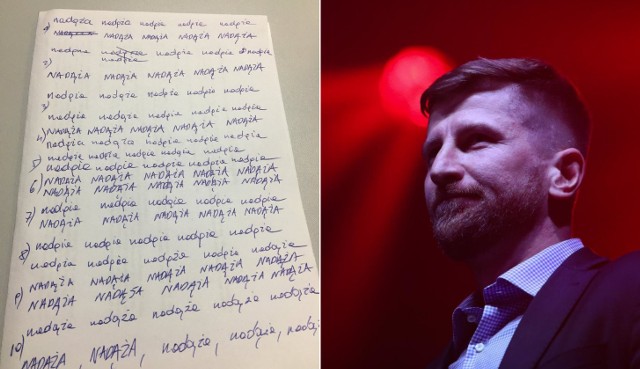 1) nadąża nadąża nadąża nadąża nadąża
NADĄŻA NADĄŻA NADĄŻA NADĄŻA
nadąża nadąża nadąża nadąża
2) nadąża
NADĄŻA NADĄŻA NADĄŻA NADĄŻA
nadąża nadąża nadąża nadąża nadąża
3)
nadąża nadąża nadąża nadąża nadąża
4) NADĄŻA NADĄŻA NADĄŻA NADĄŻA NADĄŻA
nadąża nadąża nadąża nadąża nadąża
5) nadąża nadąża nadąża nadąża nadąża
nadąża nadąża nadąża nadąża nadąża
6) NADĄŻA NADĄŻA NADĄŻA NADĄŻA NADĄŻA
NADĄŻA NADĄŻA NADĄŻA NADĄŻA NADĄŻA
7) nadąża nadąża nadąża nadąża nadąża
NADĄŻA NADĄŻA NADĄŻA NADĄŻA NADĄŻA
8) nadąża nadąża nadąża nadąża nadąża
nadąża nadąża nadąża nadąża nadąża
9) NADĄŻA NADĄŻA NADĄŻA NADĄŻA NADĄŻA
NADĄŻA NADĄŻA NADĄŻA NADĄŻA NADĄŻA
nadąża nadąża nadąża nadąża nadąża
10) NADĄŻA, NADĄŻA, nadąża, nadąża,